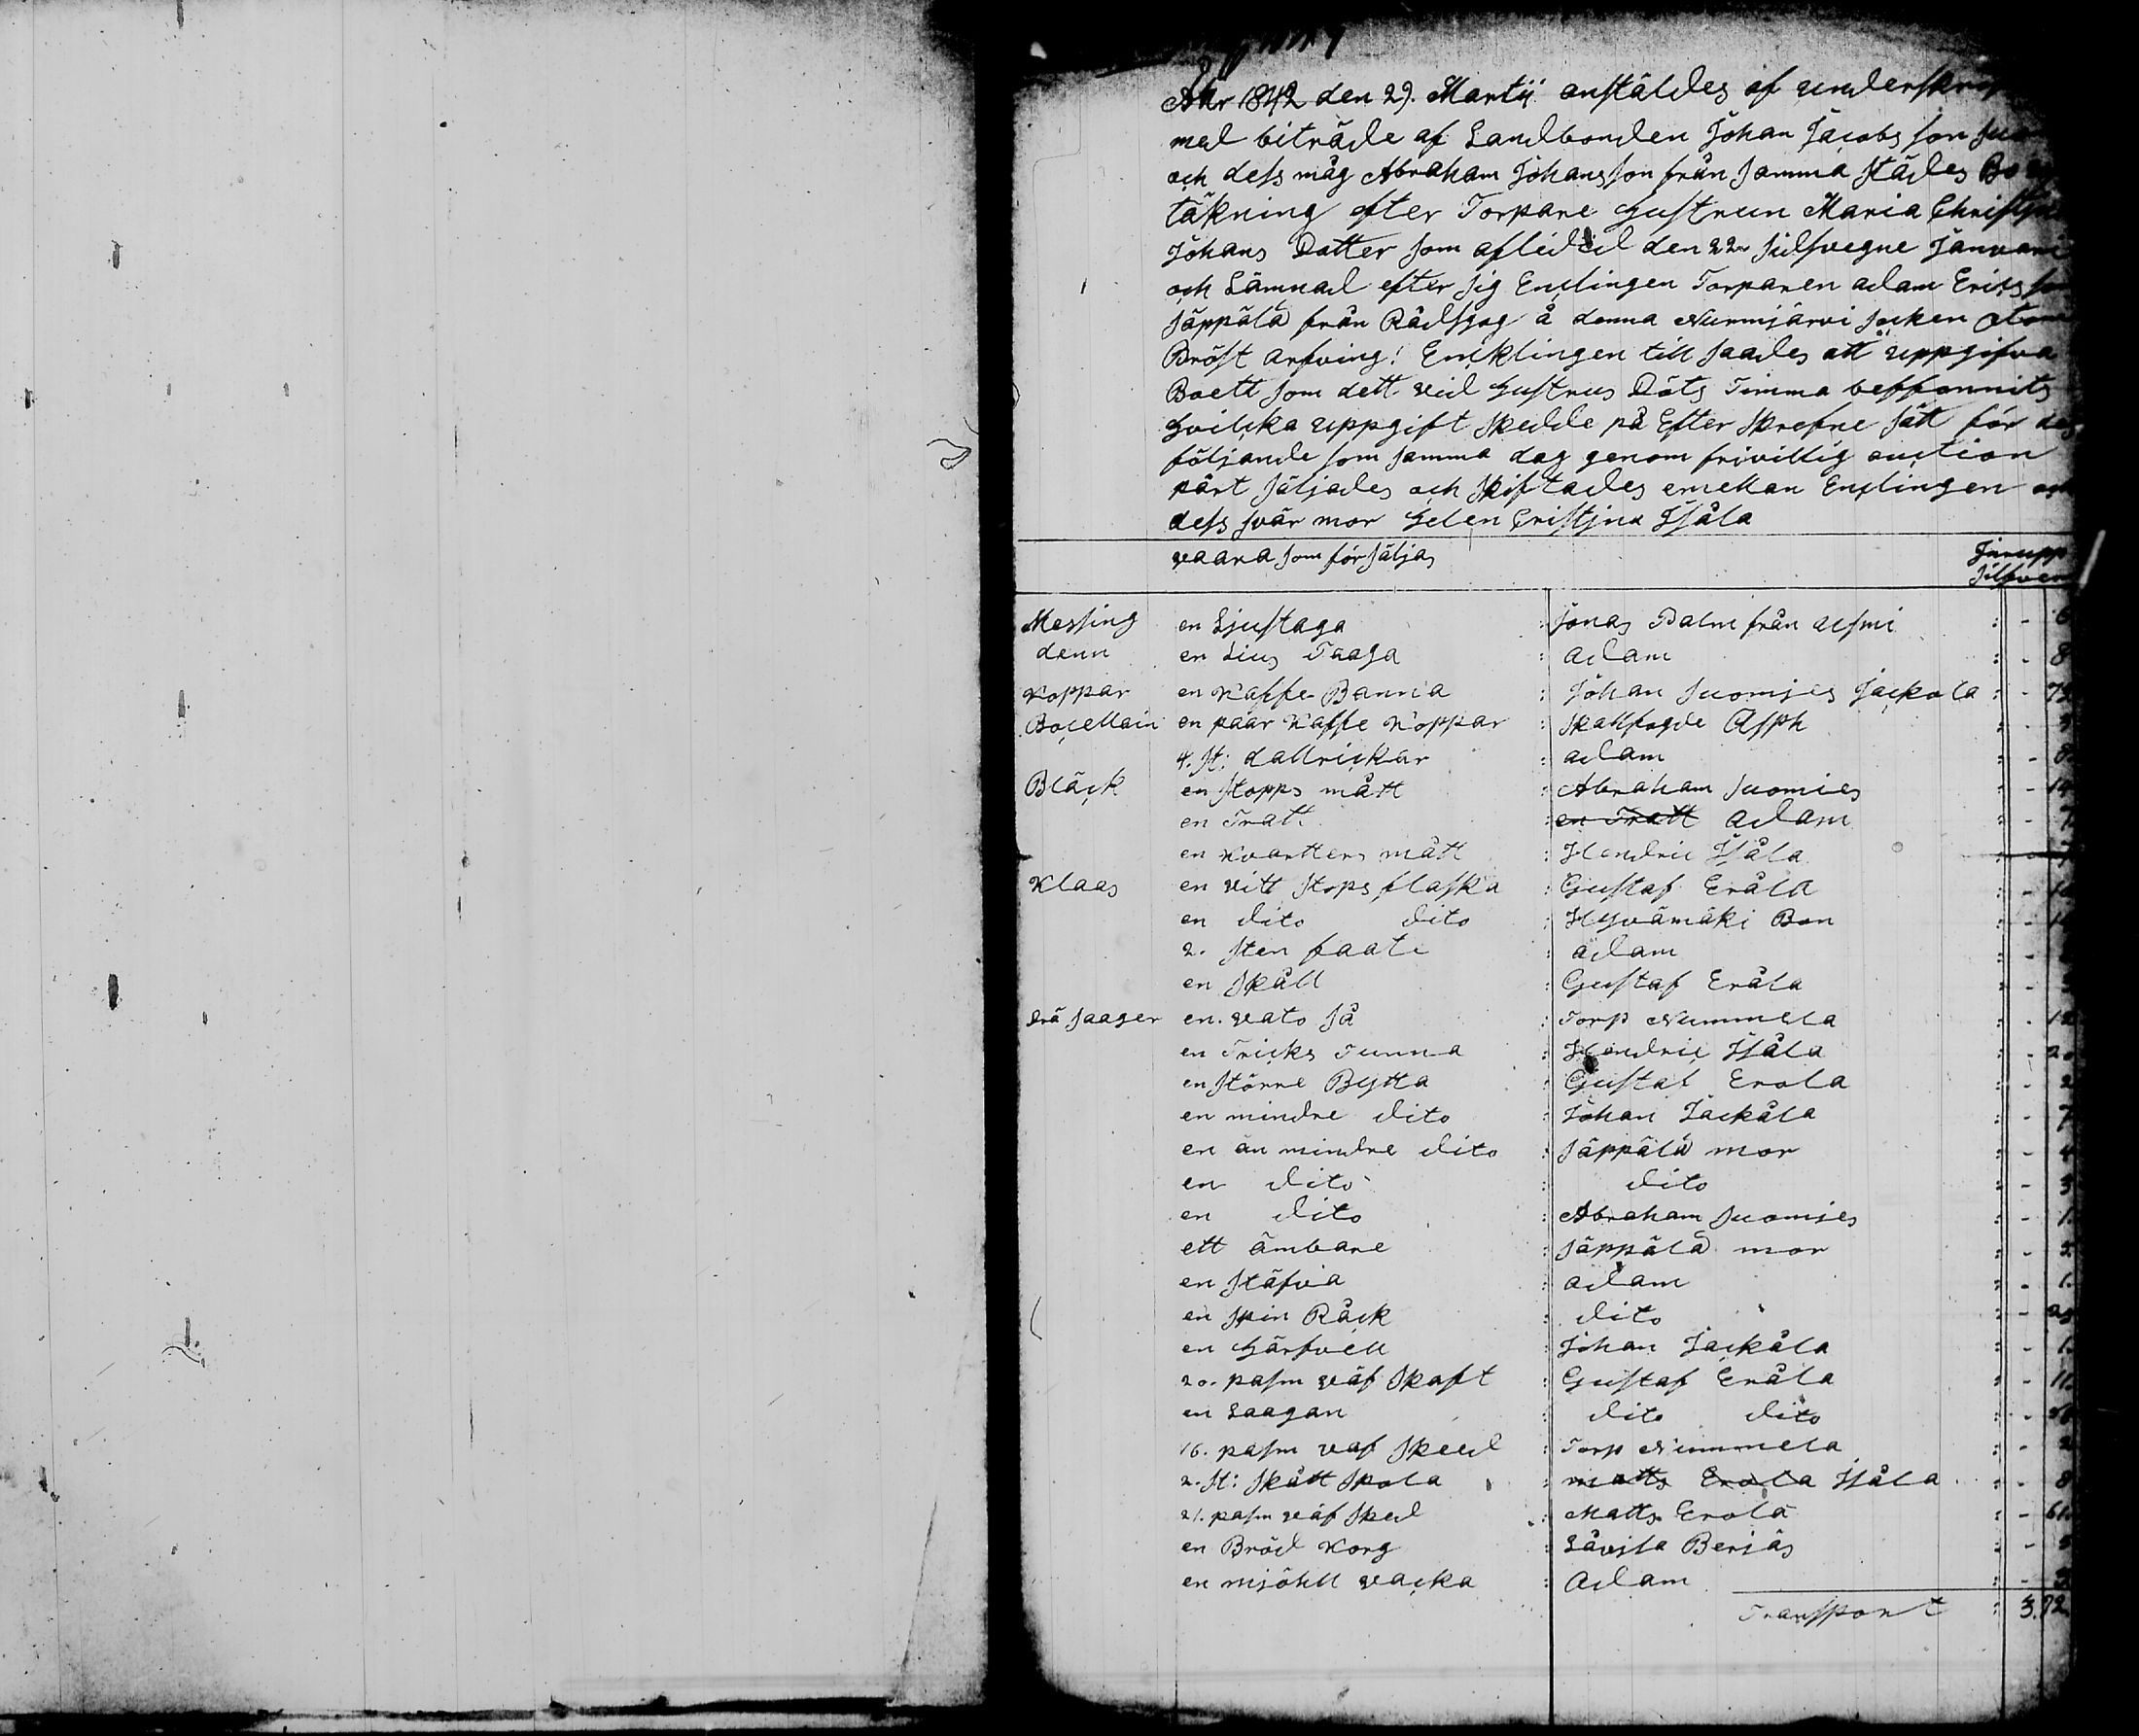 Åhr 1842 den 29. Martii anstäldes af
med biträde af Landbonden Johan Jacobs son
och dess måg Abraham Johansson från samma städes
täkning efter Torpare Hustrun Maria
Johans Dotter som afledid den 22 Januari
och Lämnad efter sig Enclingen Torparen adam Ericsson
Jäppälä från å denna Nurmijärvi socken
Bröst arfving: Encklingen till saades att uppgifva
Boett som dett vid Hustrus Döts Timma beffonnits
Hvilcka uppgift skedde på Efter skrefne sätt för
följande som samma dag genom frivillig auction
pärt säljades och skiftades emellan Enclingen
dess svär mor Helen Cristjna Isåla
vaara som försäljas
Messing en Ljustaga : Jonas Palm från : - 6
denn en Lius Taaga : adam : - 8
Koppar en Kaffe Panna : Johan Suomies Jackola : -
Bocellain en päär Kaffe Koppar : :
4. st: dallrickar : adam : - 8
Bläck en stopps mått : Abraham Suomies : - 14
en Tratt : en Tratt adam : -
en Kvarters mått : Hendric Isåla :
Klaas en vitt stops flaska : Gustaf Eråla : -
en dito dito : Hyvämäki : -
2. sten faate : adam : -
en skåll : Gustaf Eråla : -
Trä saager en vato så : Torp Nummela : - 12
en Tricks Tunna : Hendric Isåla : - 20
en större Bytta : Gustaf Erola : - 2
en mindre dito : Johan Jackåla : - 7
en än mindre dito : Jäppälä mor : - 4
en dito : dito : - 3
en dito : Abraham Suomies : - 1.
ett ämbare : Jäppälä mor : - 2
en stäfva : adam : - 1.
en spin Råck : dito : -
en Härfvell : Johan Jackåla : - 1.
20. pasm väf skaft : Gustaf Eråla : - 11.
en Laagan : dito dito : -
16. pasm vaf skeed : Torp Nummela : - 2
2. st: skått spola : matts Erola Isåla : - 8
21. pasm väf sked : Matts Erola : - 61.
en Bröd Korg : : -
en mjöhll vacka : Adam : -
Transport : 3.72